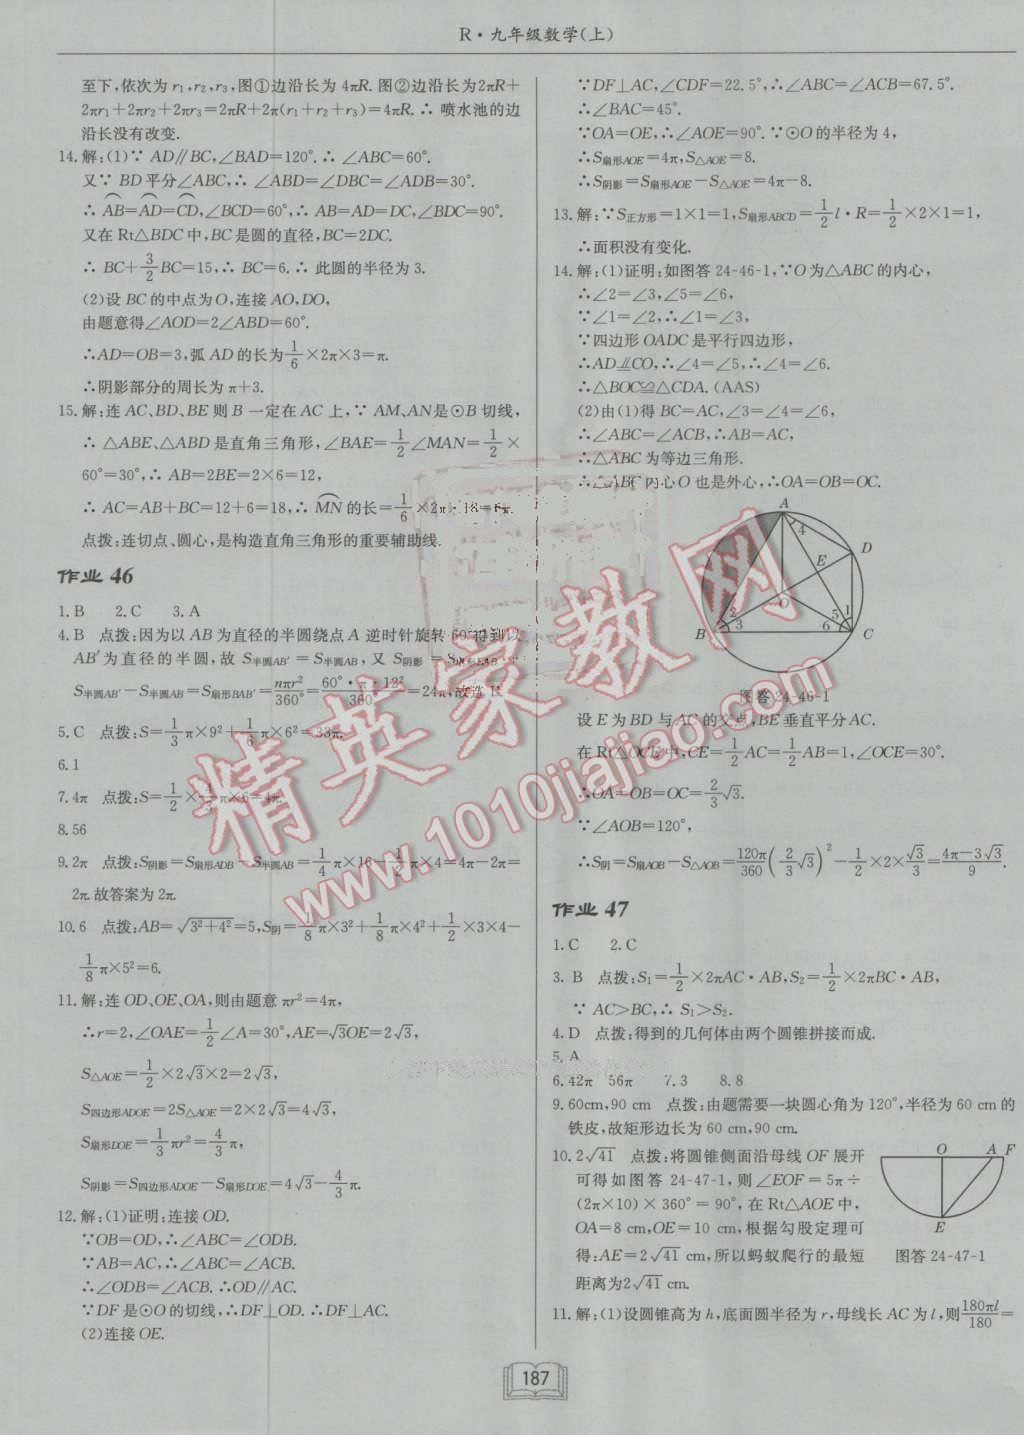 R·九年级数学(上)
至下,依次为r₁,r₂,r₃,图①边沿长为4πR.图②边沿长为2πR+
2πr₁+2πr₂+2πr₃=2πR+2π(r₁+r₂+r₃)=4πR.∴喷水池的边
沿长没有改变.
14.解:(1)∵AD∥BC,∠BAD=120°.∴∠ABC=60°.
又∵BD平分∠ABC,∴∠ABD=∠DBC=∠ADB=30°.
∴AB⌒=AD⌒=CD⌒,∠BCD=60°,∴AB=AD=DC,∠BDC=90°.
又在Rt△BDC中,BC是圆的直径,BC=2DC.
∴BC+3/2BC=15,∴BC=6.∴此圆的半径为3.
(2)设BC的中点为O,连接AO,DO,
由题意得∠AOD=2∠ABD=60°.
∴AD=OB=3,弧AD的长为1/6×2π×3=π.
∴阴影部分的周长为π+3.
15.解:连AC、BD、BE则B一定在AC上,∵AM、AN是⊙B切线,
∴△ABE、△ABD是直角三角形,∠BAE=1/2∠MAN=1/2×
60°=30°,∴AB=2BE=2×6=12,
∴AC=AB+BC=12+6=18,∴MN⌒的长=1/6×2π×18=6π.
点拨:连切点、圆心,是构造直角三角形的重要辅助线.
作业46
1.B 2.C 3.A
4.B 点拨:因为以AB为直径的半圆绕点A逆时针旋转60°得到以
AB′为直径的半圆,故S半圆AB′=S半圆AB,又S阴影=S
S半圆AB′-S半圆AB=S扇形BAB′=nπr²/360°=60°·π·12²/360°=24π,故选B.
5.C 点拨:S=1/3π×9²+1/6π×6²=33π.
6.1
7.4π 点拨:S=1/2×4/3π×6=4π.
8.56
9.2π 点拨:S阴影=S扇形ADB-S半圆AB=1/4π×16-1/2π×4=4π-2π=
2π.故答案为2π.
10.6 点拨:AB=√(3²+4²)=5,S阴=1/8π×3²+1/8π×4²+1/2×3×4-
1/8π×5²=6.
11.解:连OD、OE、OA,则由题意πr²=4π,
∴r=2,∠OAE=1/2∠A=30°,AE=√3OE=2√3,
S△AOE=1/2×2√3×2=2√3,
S四边形ADOE=2S△AOE=2×2√3=4√3,
S扇形DOE=1/3πr²=4/3π,
S阴影=S四边形ADOE-S扇形DOE=4√3-4/3π.
12.解:(1)证明:连接OD.
∵OB=OD,∴∠ABC=∠ODB.
∵AB=AC,∴∠ABC=∠ACB.
∴∠ODB=∠ACB.∴OD∥AC.
∵DF是⊙O的切线,∴DF⊥OD.∴DF⊥AC.
(2)连接OE.
∵DF⊥AC,∠CDF=22.5°,∴∠ABC=∠ACB=67.5°.
∴∠BAC=45°.
∵OA=OE,∴∠AOE=90°.∵⊙O的半径为4,
∴S扇形AOE=4π,S△AOE=8.
∴S阴影=S扇形AOE-S△AOE=4π-8.
13.解:∵S正方形=1×1=1,S扇形ABCD=1/2l·R=1/2×2×1=1,
∴面积没有变化.
14.解:(1)证明:如图答24-46-1,∵O为△ABC的内心,
∴∠2=∠3,∠5=∠6,
∵∠1=∠2,∴∠1=∠3,
∵四边形OADC是平行四边形,
∴AD∥=CO,∴∠4=∠5,∴∠4=∠6,
∴△BOC≌△CDA.(AAS)
(2)由(1)得BC=AC,∠3=∠4=∠6,
∴∠ABC=∠ACB,∴AB=AC,
∴△ABC为等边三角形.
∴△ABC内心O也是外心,∴OA=OB=OC.
A
4
D
E
O
2
3
5
1
6
B
C
图答24-46-1
设E为BD与AC的交点,BE垂直平分AC.
在Rt△OCE中,CE=1/2AC=1/2AB=1,∠OCE=30°.
∴OA=OB=OC=2/3√3.
∵∠AOB=120°,
∴S阴=S扇AOB-S△AOB=120π/360(2/3√3)²-1/2×2×√3/3=(4π-3√3)/9.
作业47
1.C 2.C
3.B 点拨:S₁=1/2×2πAC·AB,S₂=1/2×2πBC·AB,
∵AC>BC,∴S₁>S₂.
4.D 点拨:得到的几何体由两个圆锥拼接而成.
5.A
6.42π 56π 7.3 8.8
9.60cm,90 cm 点拨:由题需要一块圆心角为120°,半径为60 cm的
铁皮,故矩形边长为60 cm,90 cm.
10.2√41 点拨:将圆锥侧面沿母线OF展开
可得如图答24-47-1,则∠EOF=5π÷
(2π×10)×360°=90°,在Rt△AOE中,
OA=8 cm,OE=10 cm,根据勾股定理可
得:AE=2√41 cm,所以蚂蚁爬行的最短
距离为2√41 cm.
O A F
E
图答24-47-1
11.解:(1)设圆锥高为h,底面圆半径为r,母线长AC为l,则180πl/180=
187
精英家教网
www.1010jiajiao.com